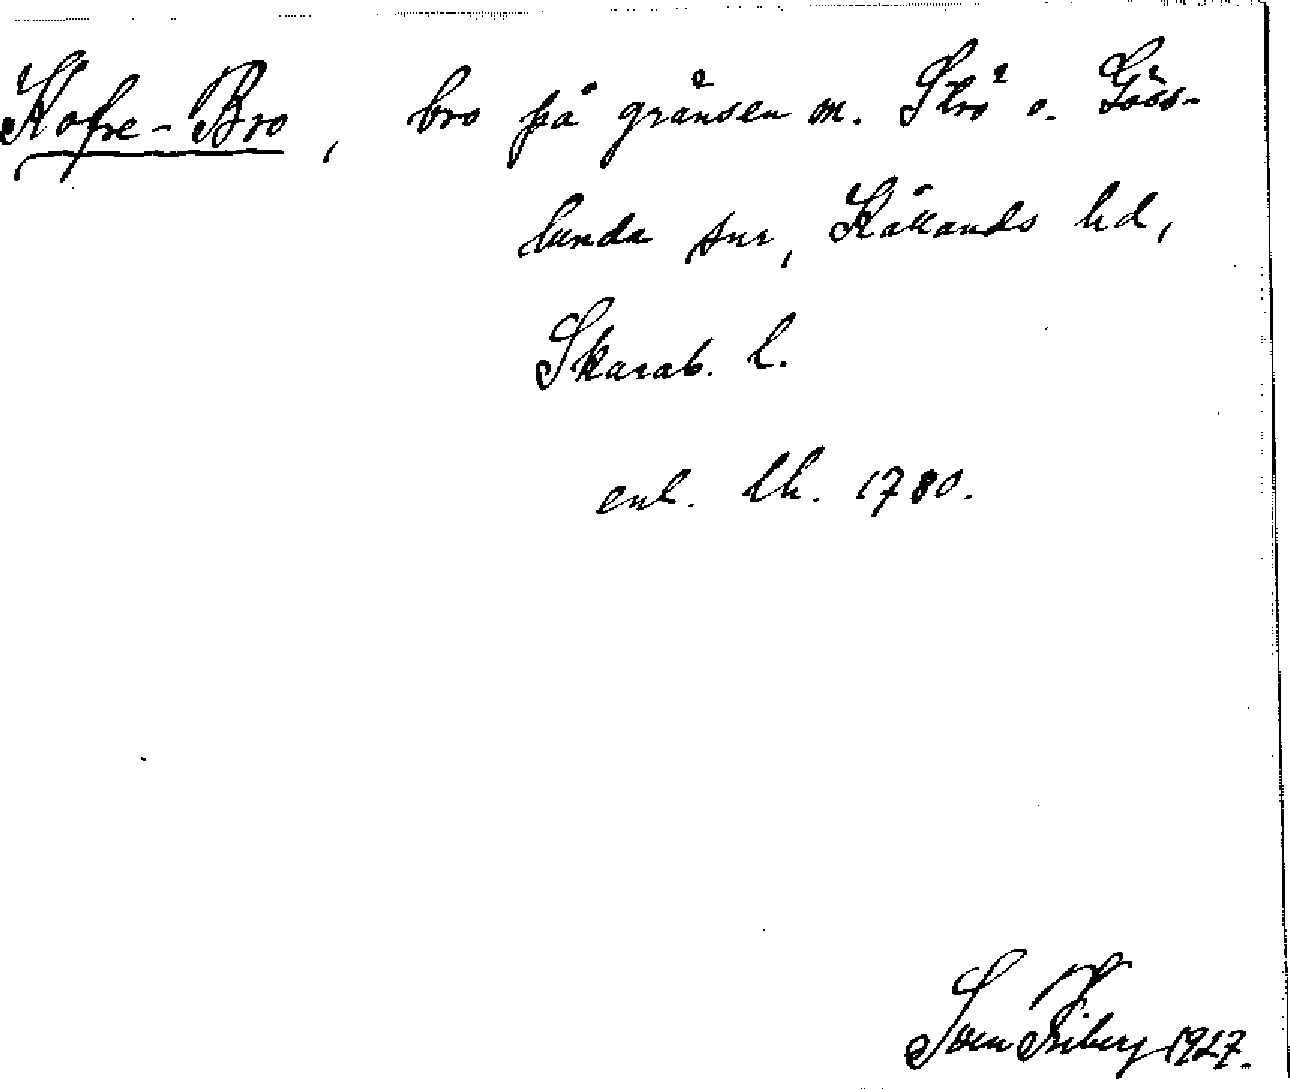 Kofre-Bro, bro på gränsen m. Strö o. Göss-
lunda snr, Kållands hd,
Skarab. l.
enl. lk. 1780.
Sven Friberg 1927.